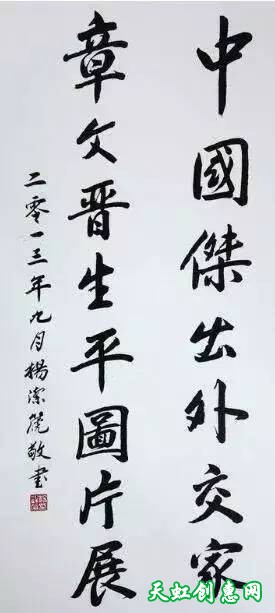 中國傑出外交家
章文晋生平圖片展
二零一三年九月楊潔篪敬書
天虹创惠网